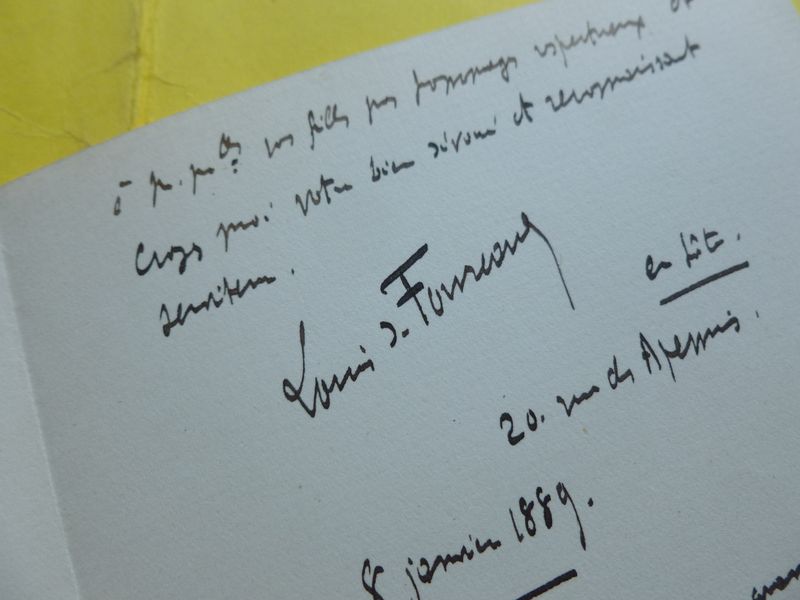 à M. M^lles vos filles mes hommages respectueux et
Croyez moi votre bien dévoué et reconnaissant
serviteur.
Louis de Fourcaud
en hâte.
20. rue des Apennins.
8 janvier 1889.